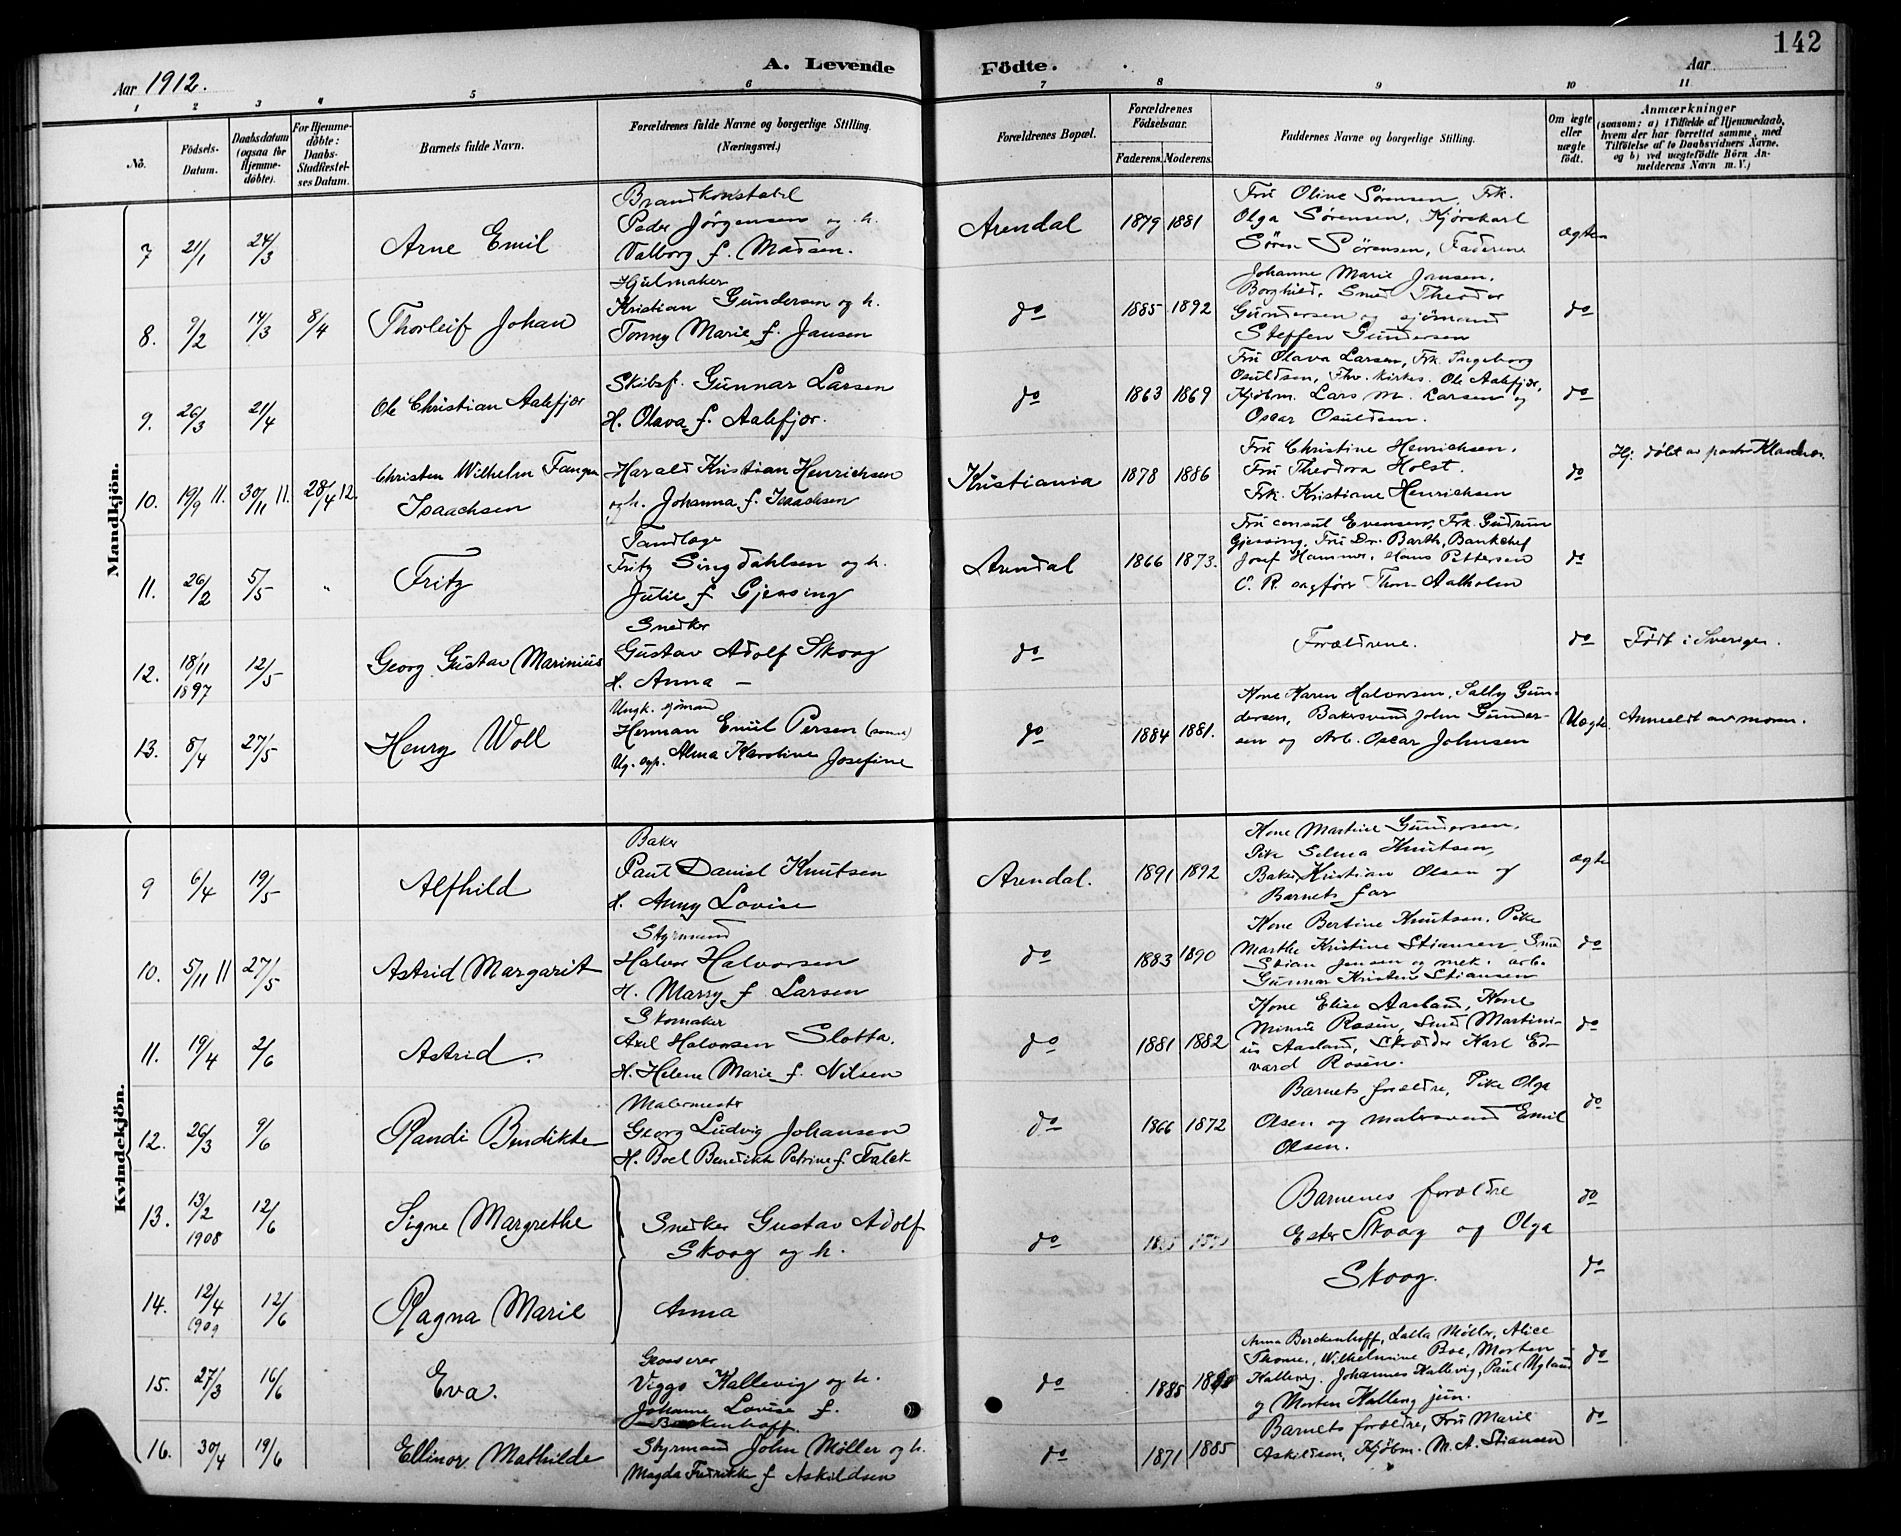 142
Aar 1912.
A. Levende
Födte.
Aar
1 2 3 4 5 6 7 8 9 10 11
No.
Födsels-
Datum.
Daabsdatum
(ogsaa for
Hjemme-
döbte).
For Hjemme-
döbte:
Daabs-
Stadfæstel-
ses Datum.
Barnets fulde Navn.
Forældrenes fulde Navne og borgerlige Stilling.
(Næringsvei.)
Forældrenes Bopæl.
Forældrenes
Födselsaar.
Faderens. Moderens.
Faddernes Navne og borgerlige Stilling.
Om ægte
eller
uægte
födt.
Anmærkninger
(saasom: a) i Tilfælde af Hjemmedaab,
hvem der har forrettet samme, med
Tilföielse af to Daabsvidners Navne,
og b) ved uægtefödte Börn An-
melderens Navn m. V.)
Mandkjön.
7 21/1 24/3 Arne Emil
Brandkonstabel
Peder Jörgensen og h.
Valborg f. Madsen.
Arendal 1879 1881
Fru Oline Sørensen, Frk.
Olga Sørensen, Kjørekarl
Søren Sørensen, Faderene
ægte
8. 9/2 14/3 8/4 Thorleif Johan
Hjulmaker
Kristian Gundersen og h.
Tonny Marie f. Jansen
do 1885 1892
Johanne Marie Jansen,
Borghild, Smed Theodor
Gundersen og sjömand
Steffen Gundersen
do
9. 26/3 21/4 Ole Christian Aalefjær
Skibsf. Gunnar Larsen
H. Olava f. Aalefjær.
do 1863 1869
Fru Olava Larsen, Frk. Ingeborg
Osuldsen, Thv. kirkes. Ole Aalefjær,
Kjøbm. Lars M. Larsen og
Oscar Osuldsen.
do
10. 19/9 11. 30/11 11. 28/4 12
Christen Wilhelm Fangen
Isaachsen
Harald Kristian Henrichsen
og h. Johanna f. Isaachsen
Kristiania 1878 1886
Fru Christine Henrichsen,
Fru Theodora Holst.
Frk. Kristiane Henrichsen
do
Hj. døbt av pastor
11. 26/2 5/5 " Fritz
Tandlæge
Fritz Sing Dahlsen og h.
Julie f Gjessing
Arendal 1866 1873.
Fru consul Evensen, Frk. Gudrun
Gjessing, Fru Dr. Barth, Bankchef
Josef Hammer, Hans Pettersen
O. R. sagfører Thom Aalholm
do
12. 18/11 1897 12/5 Georg Gustav Marinius
Snedker
Gustav Adolf Skoog
H. Anna —
do
Forældrene.
do
Født i Sverige.
13. 8/4 27/5 Henry Woll
Ungk. sjömand
Herman Emil Persen
Ug. Alma Karoline Josefine
do 1884 1881.
Kone Karen Halvorsen, Sally Gun-
dersen, Bakersvend John Gunder-
sen og Arb. Oscar Johnsen
Uægte
Anmeldt av moren.
Kvindekjön.
9 6/4 19/5 Alfhild
Baker
Paul Daniel Knutsen
H. Anny Lovise
Arendal. 1891 1892
Kone Mathie Gundersen,
Pike Selma Knutsen,
Baker Kristian Olsen og
Barnets far
ægte
10. 5/11 11 27/5 Astrid Margarit
Styrmand
Halvor Halvorsen
H. Marry f Larsen
do 1883 1890
Kone Bertine Knutsen, Pike
Marthe Kristine Stiansen, Smed
Stian Jensen og mek. arb.
Gunnar Kristen Stiansen
do
11. 19/4 2/6 Astrid.
Skomaker
Axel Halvorsen Slotta.
H. Helene Marie f. Nilsen
do 1881 1882
Kone Elise Aasland, Kone
Minnie Rosén, Smed Martini-
us Aasland, Skrædder Karl Ed-
vard Rosén.
do
12. 26/3 9/6 Randi Bendikte
Malermester
Georg Ludvig Johansen
H. Boel Benedikte Petrine f. Falck
do 1866 1872
Barnets forældre, Pike Olga
Olsen og malersvend Emil
Olsen.
do
13. 13/2 1908 12/6 Signe Margrethe
Snedker Gustav Adolf
Skoog og h.
do
Barnenes forældre
Ester Skoog og Olga
do
14. 12/4 1909 12/6 Ragna Marie
Anna
Skoog.
do
15. 27/3 16/6 Eva.
Grosserer
Viggo Kallevig og h.
Johanne Lovise f.
Berckenhoff.
do 1885
Anna Berckenhoff, Lalla Møller, Alice
Thome, Wilhelmine Boe, Morten
Kallevig. Johannes Kallevig, Paul Ugland
og Morten Kallevig jun.
do
16. 30/4 19/6 Ellinor Mathilde
Styrmand John Møller og h.
Magda Fredrikke f Askildsen
do 1871 1885
Barnets forældre, Fru Marie
Askildsen, Kjøbm. M. A. Stiansen
do